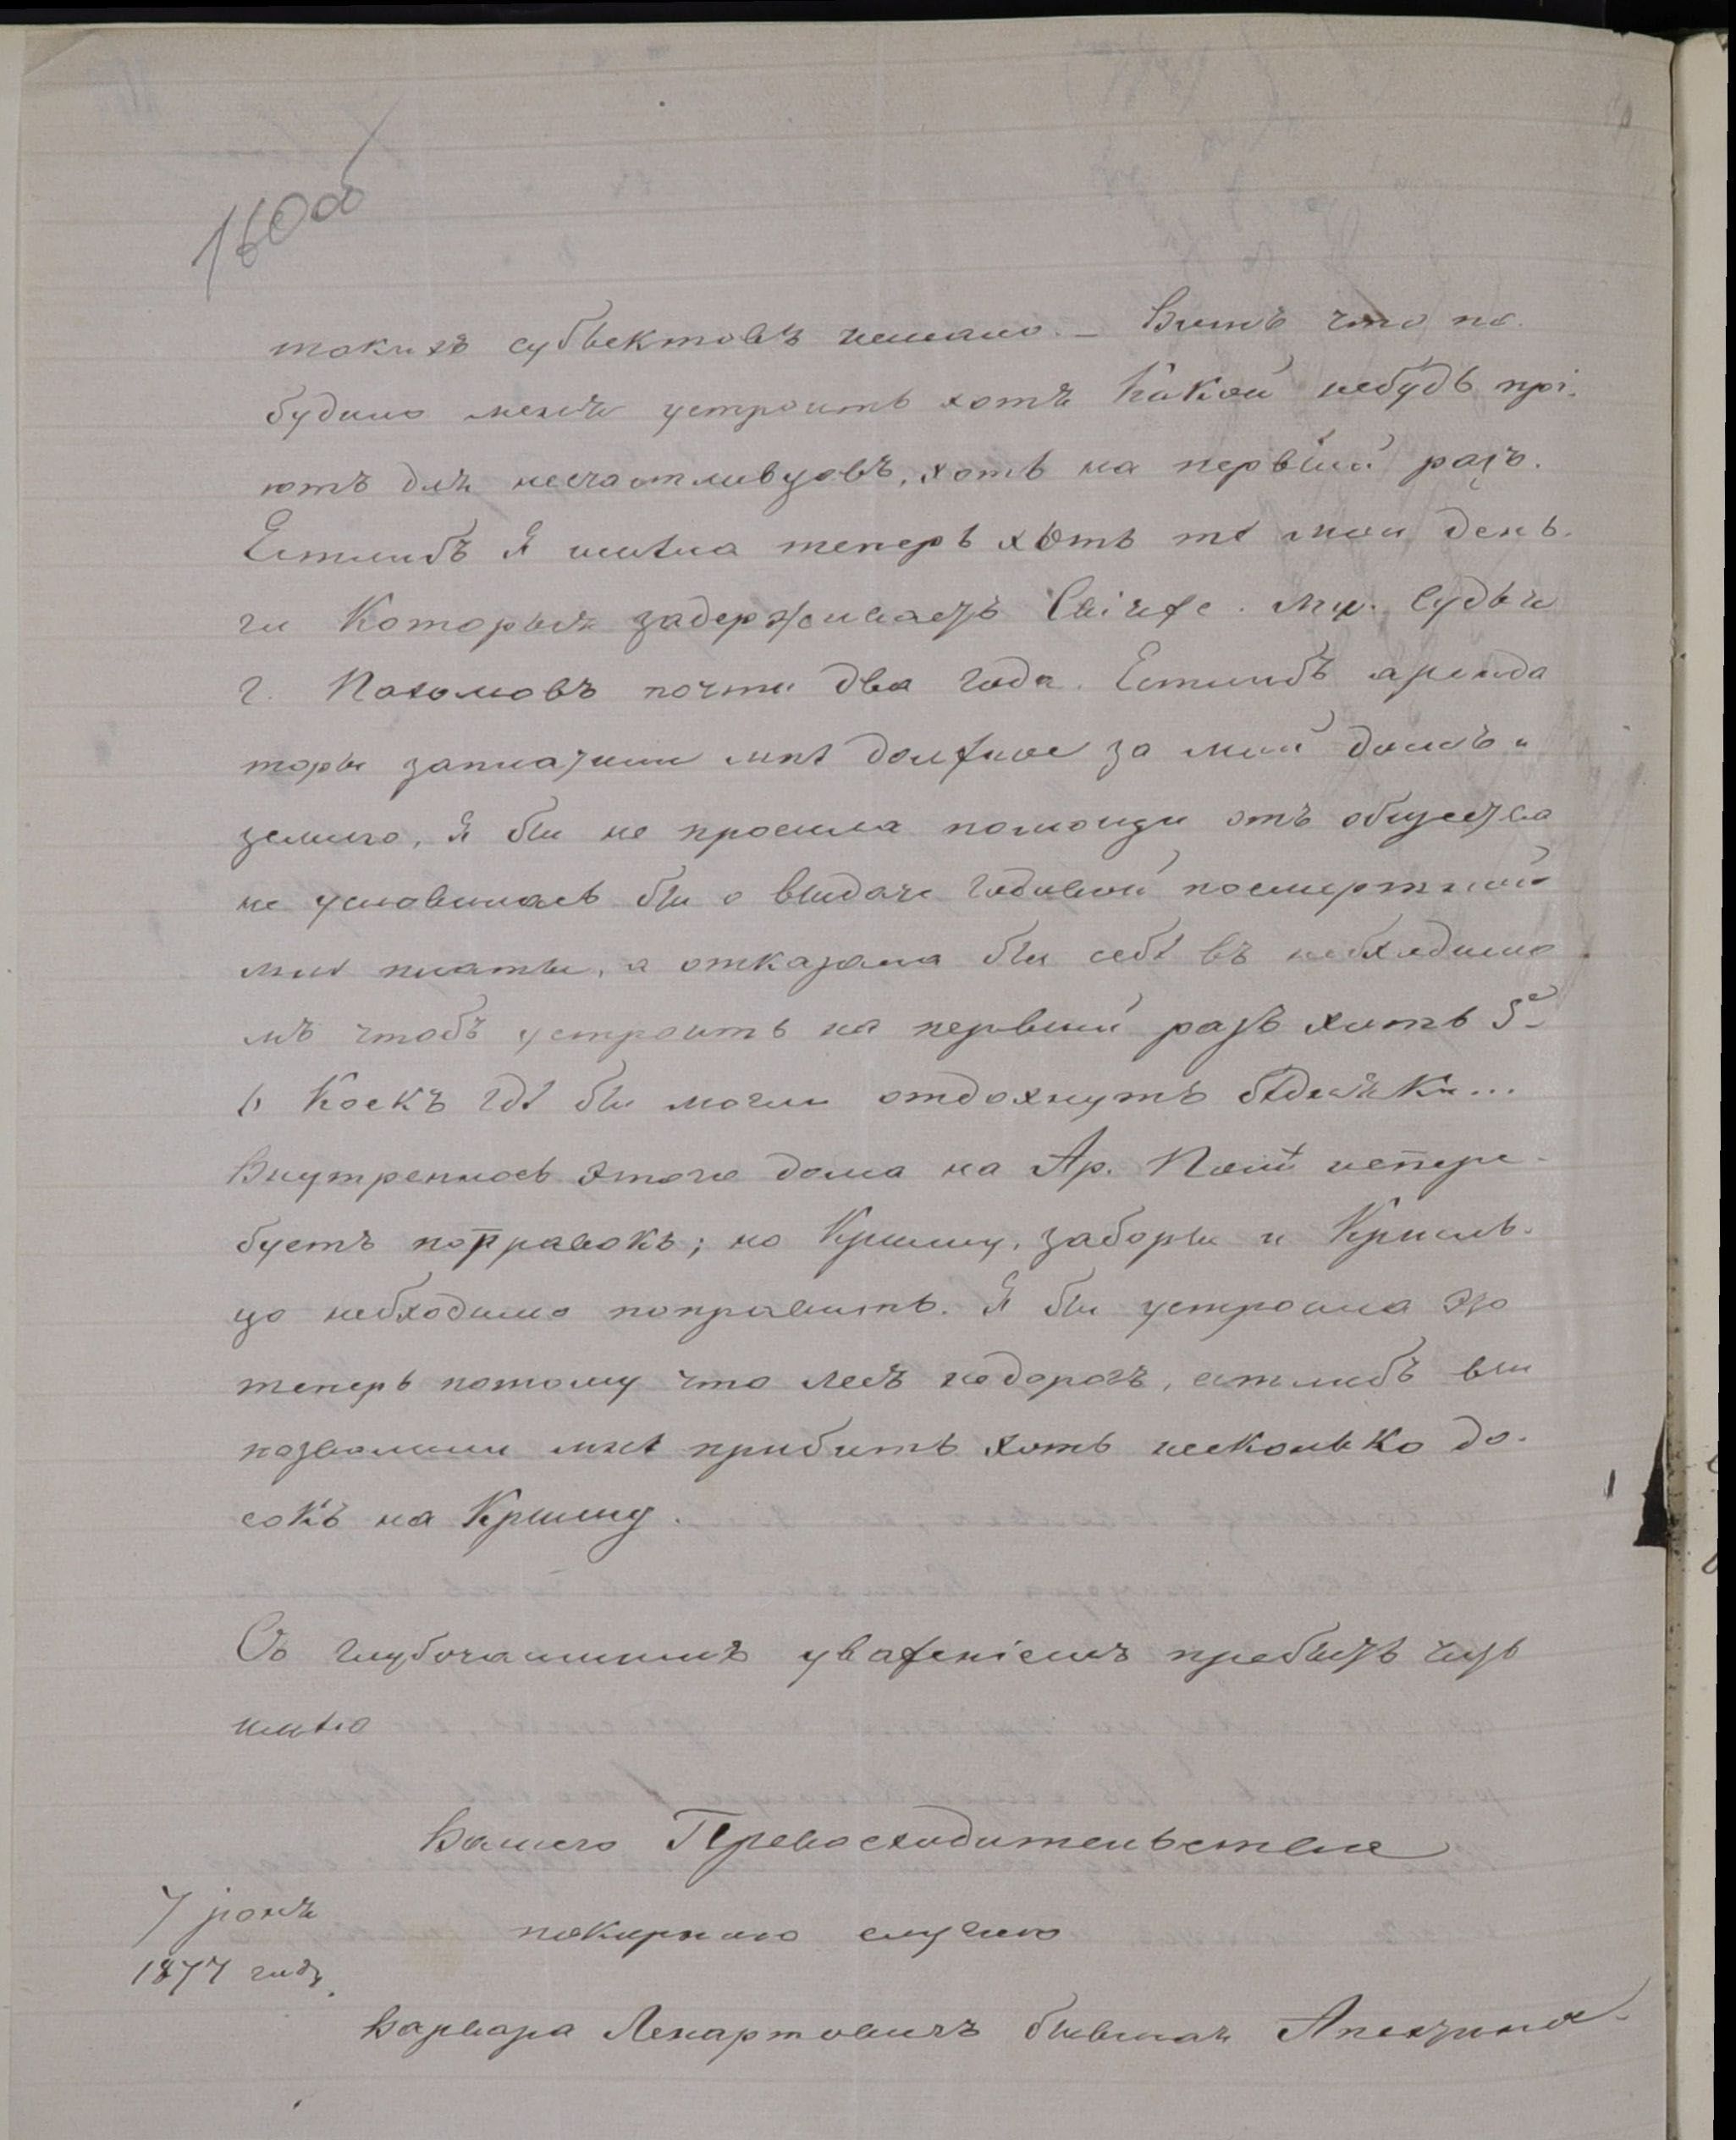 160об
такихъ субъектовъ немало. — Вотъ что по-
будило меня устроить хотя какой небудь прі-
ютъ для несчастливцовъ, хоть на первый разъ.
Естлибъ я имѣла теперь хоть тѣ мои день-
ги которыя задерживаетъ Мир. Судья
г. Пахомовъ почти два года. Естлибъ аренда
торы заплатили мнѣ должное за мой домъ и
землю, я бы не просила помощи отъ общества
не условилась бы о выдаче годовой посмертной
мнѣ платы, а отказала бы себѣ въ необходимо
мъ чтобъ устроить на первый разъ хоть 5-
6 коекъ гдѣ бы могли отдохнуть бѣдняки...
Внутренность этого дома на Ар. нетре-
буетъ поправокъ; но крышу, заборы и крыль-
цо необходимо поправить. Я бы устроила это
теперь потому что лесъ недорогъ, естлибъ вы
позволили мнѣ прибить хоть несколько до-
сокъ на крышу.
Съ глубочайшимъ уваженіемъ пребыть честь
имѣю
Вашего Превосходительства
покорною слугою
7 іюня
1877 года.
Варвара Ленартовичъ бывшая